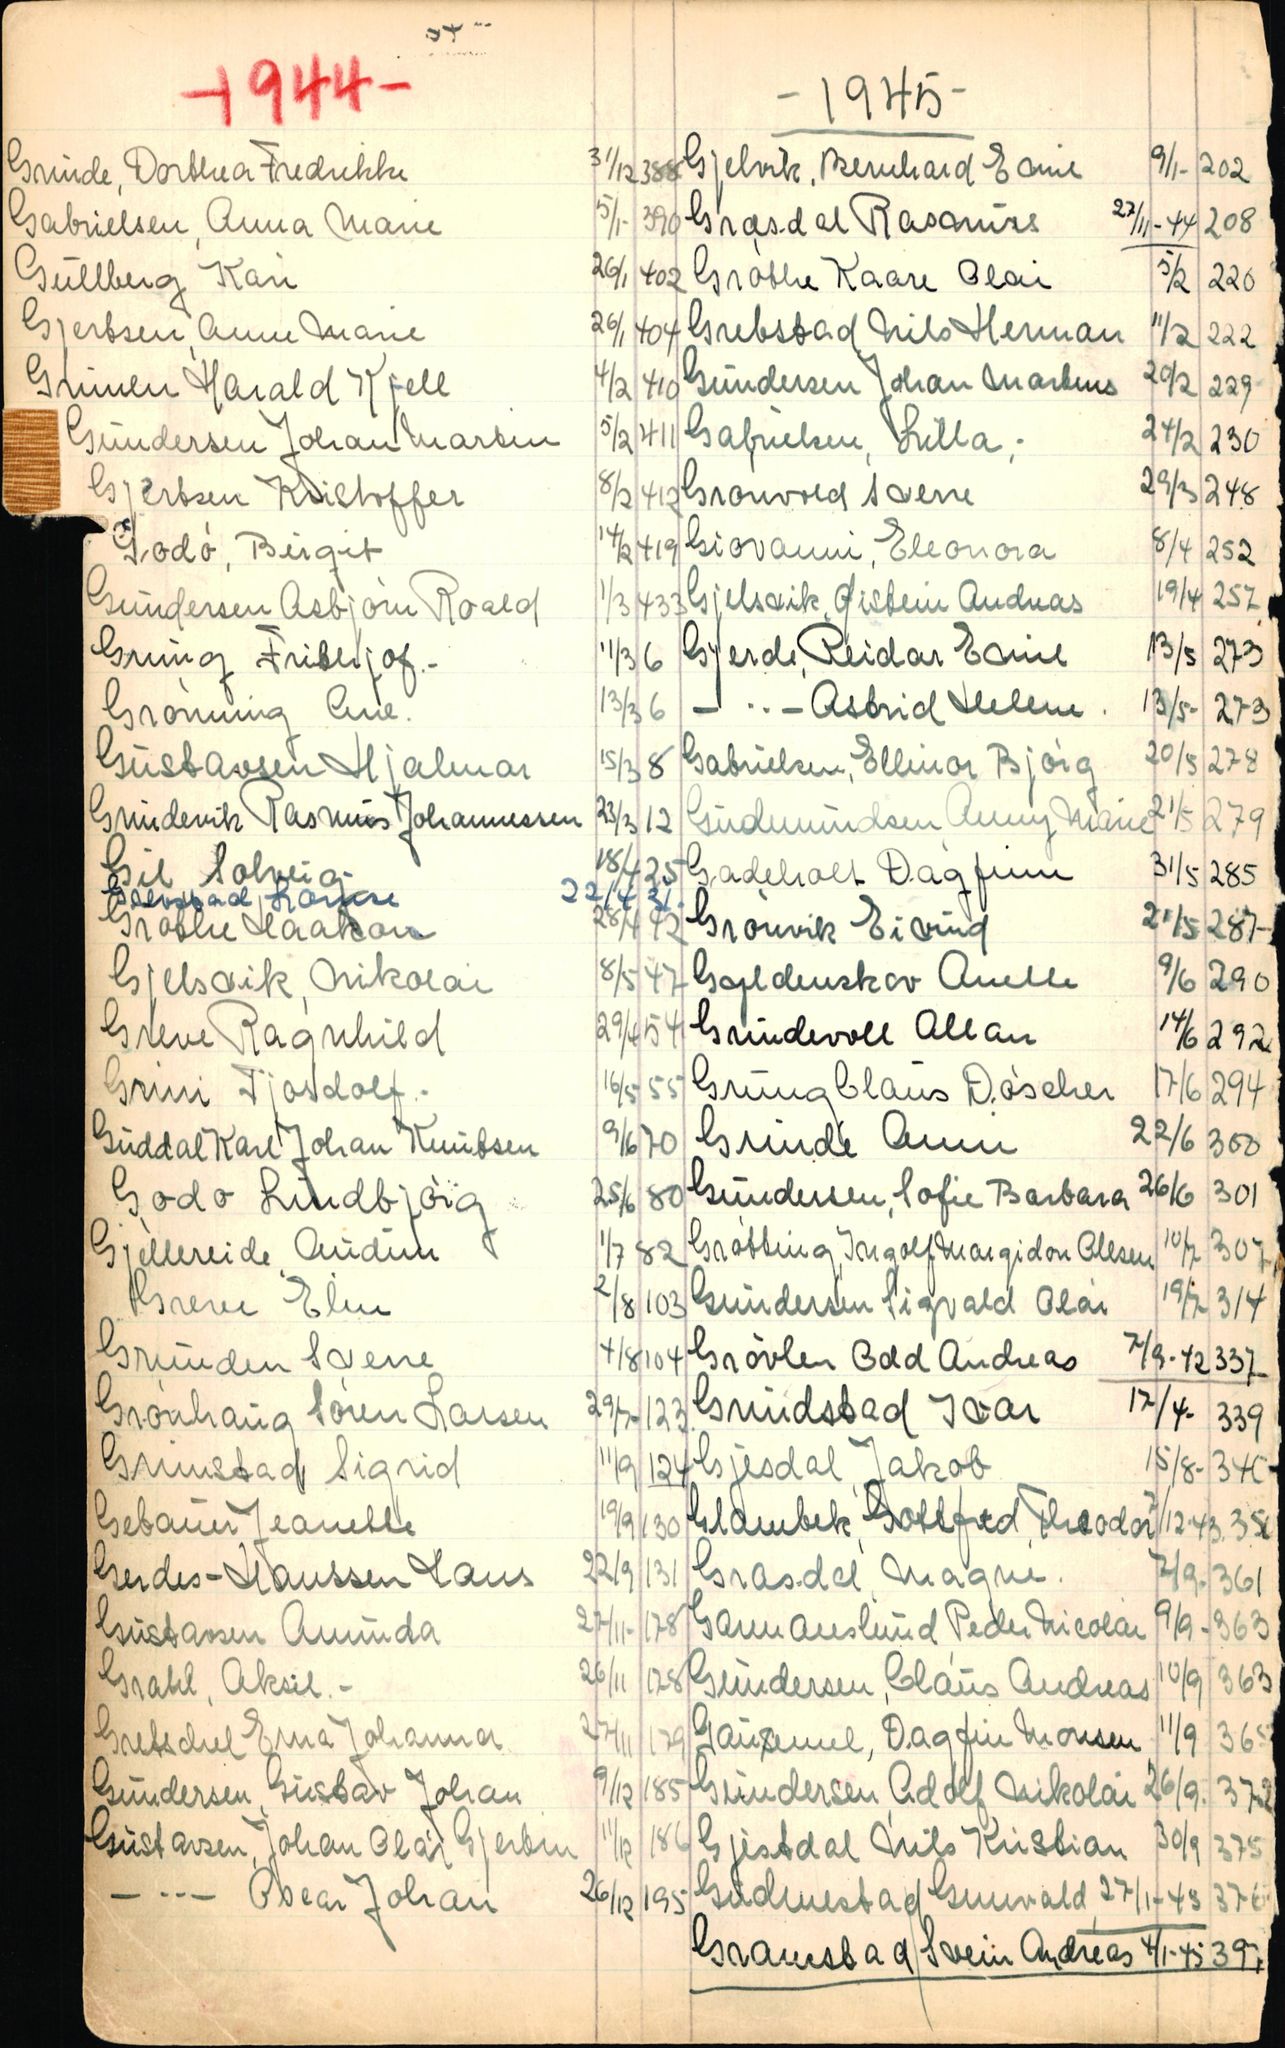 -1944-
Grinde, Dorthea Fredrikke 31/12 388
Gabrielsen, Anna Marie 5/1- 390
Gullberg Kari 26/1 402
Gjertsen, Anne Marie 26/1 404
Grimen Harald Kjell 4/2 410
Gundersen Johan Martin 5/2 411
Gjertsen Kristoffer 8/2 412
Godö, Birgit 14/2 419
Gundersen Asbjörn Roald 1/3 433
Gruing Frithjof.- 11/3 6
Grönning Ane. 13/3 6
Gustavsen Hjalmar 15/3 8
Grindevik Rasmus Johannessen 23/3 12
Gil Solveig 18/4 25
22/4 31.
Gröthe Haakon 28/4 42
Gjelsvik, Nikolai 8/5 47
Greve Ragnhild 29/4 54
Grini Tjodolf.- 16/5 55
Guddal Karl Johan Knutsen 9/6 70
Godö Lindbjörg 25/6 80
Gjellereide Audun 1/7 82
Greve Elin 2/8 103
Grunden Sverre 4/8 104
Grönhaug Sören Larsen 29/7- 123
Grimstad Sigrid 11/9 124
Gebauer Jeanette 19/9 130
Gerdes-Hanssen Hans 22/9 131
Gustavsen Aminda 27/11- 178
Grahl, Aksel.- 26/11 178
Gretschel Erna Johanna 27/11 179
Gundersen, Gustav Johan 9/12 185
Gustavsen, Johan Olai Gjertin 11/12 186
— ··· — Oscar Johan 26/12 195
-1945-
Gjelvik, Bernhard Emil 9/1- 202
Grasdal Rasmus 27/11-44 208
Gröthe Kaare Olai 5/2 220
Grebstad Nils Herman 11/2 222
Gundersen Johan Martinus 20/2 229
Gabrielsen, Lilla. 24/2 230
Grönvold Sverre 29/3 248
Giovanni, Eleonora 8/4 252
Gjelsvik, Öistein Andreas 19/4 257
Gjerde, Reidar Emil 13/5 273
— ·· — Astrid Helene. 13/5- 273
Gabrielsen, Ellinor Björg 20/5 278
Gudmundsen Anny Marie 21/5 279
Gadeholt Dagfinn 31/5 285
Grönvik Eivind 21/5 287-
Gyldenskov Anelle 9/6 290
Grindevoll Allan 14/6 292
Grung Claus Döscher 17/6 294
Grinde Anna 22/6 300
Gundersen, Sofie Barbara 26/6 301
Grötting, Ingolf Margidon Olsen 10/7 307
Gundersen Sigvald Olai 19/7 314
Grövlen Odd Andreas 7/9-42 337
Grindstad Ivar 17/4- 339
Gjesdal, Jakob 15/8- 340
Glambek, Gottfred Theodor 7/12-43. 358
Grasdal Magne. 7/9- 361
Garmanslund Peder Nicolai 9/9- 363
Gundersen, Claus Andreas 10/9 363
Gausemel, Dagfin Monsen 11/9 365
Gundersen Adolf Nikolai 26/9. 372
Gjestdal Nils Kristian 30/9 375
Gudmestad Gunvald, 27/1-43 376
Gramstad Svein Andreas 4/1-45 397